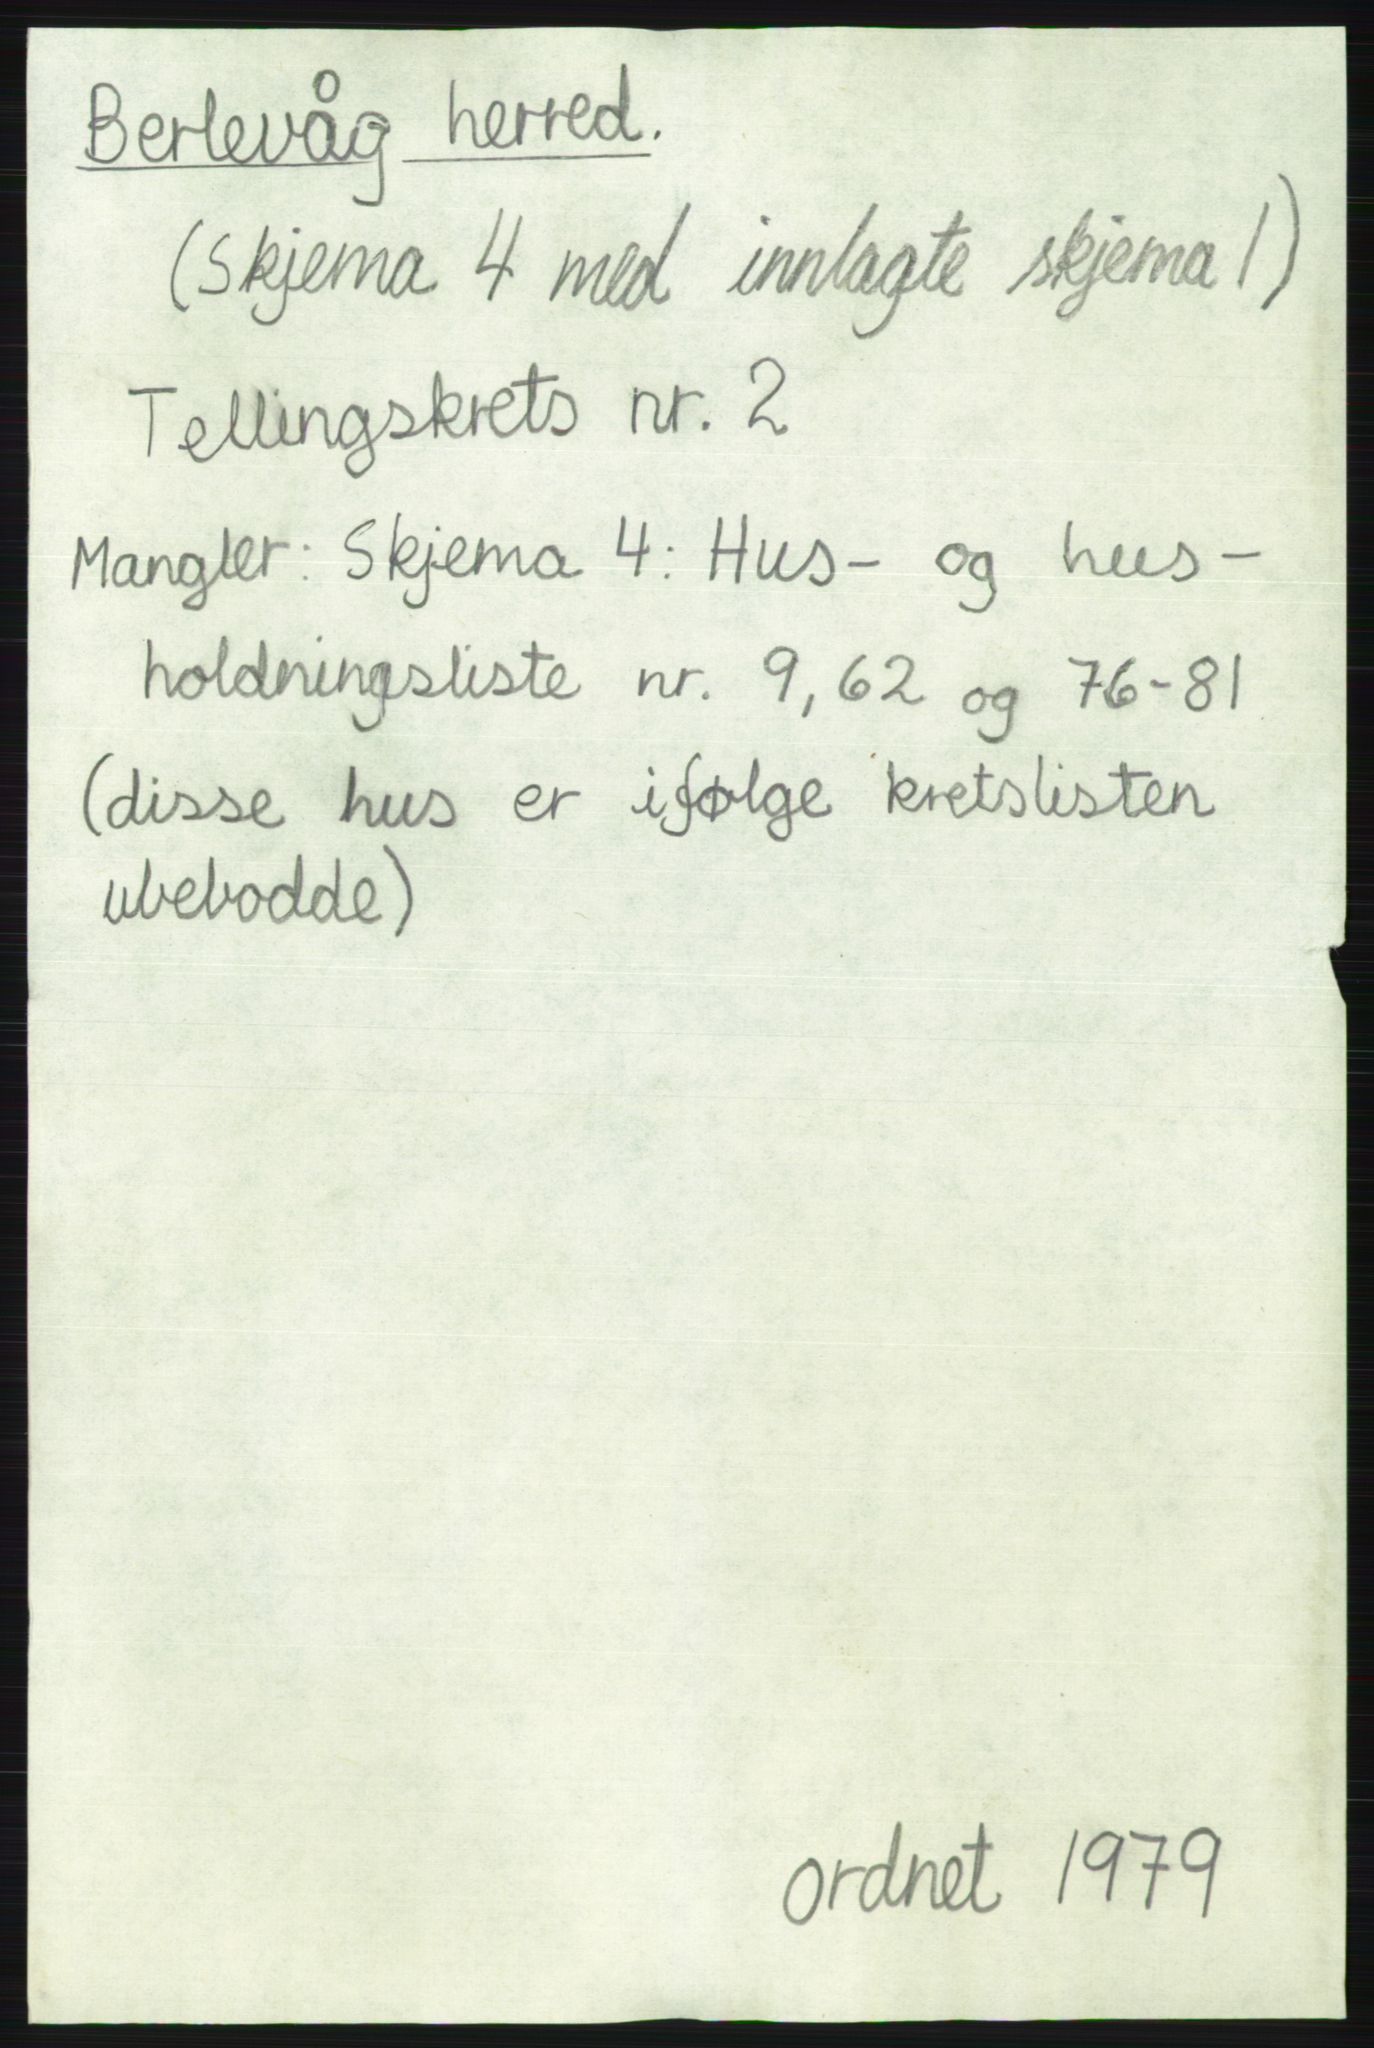 Berlevåg herred.
(Skjema 4 med innlagte skjema 1)
Tellingskrets nr. 2
Mangler: Skjema 4: Hus- og hus-
holdningsliste nr. 9, 62 og 76-81
(disse hus er ifølge kretslisten
ubebodde)
ordnet 1979